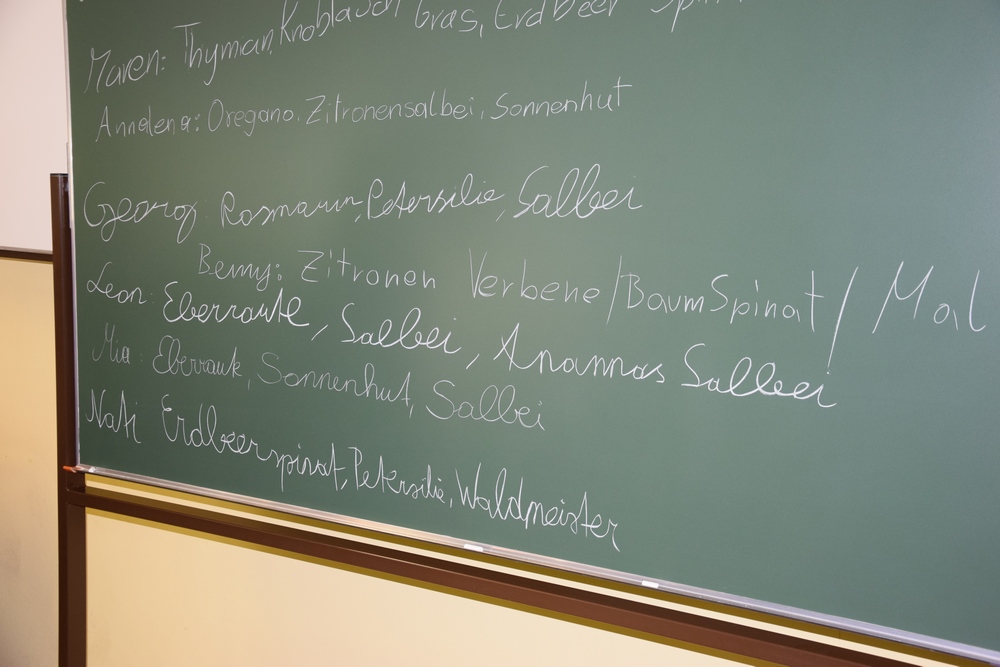 Maren: Thyman, Knoblauch Gras, Erdbeer Spin
Annalena: Oregano, Zitronensalbei, Sonnenhut
Georg: Rosmarin, Petersilie, Salbei
Benny: Zitronen Verbene / BaumSpinat / Mal
Leon: Eberraute, Salbei, Anannas Salbei
Mia: Eberraute, Sonnenhut, Salbei
Nati Erdbeerspinat, Petersilie, Waldmeister